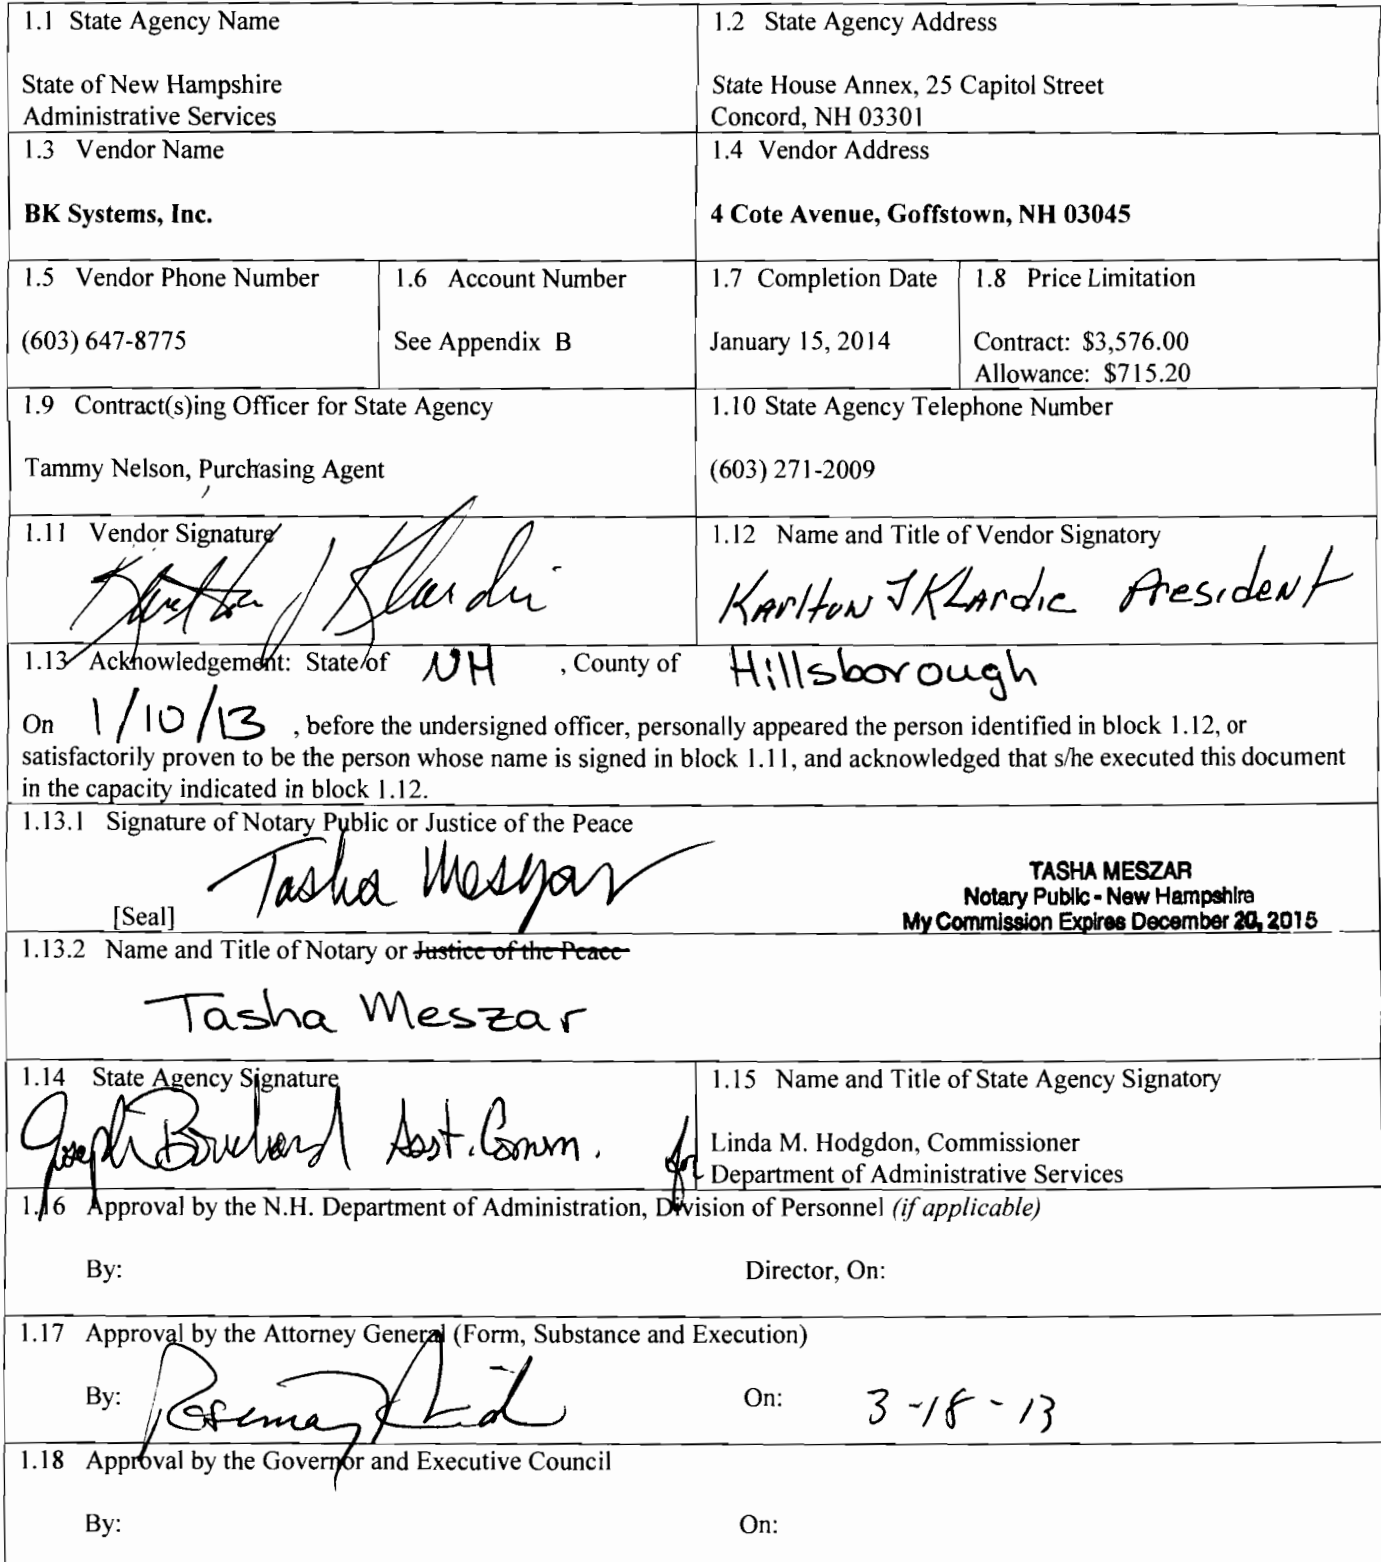 1.1 State Agency Name
1.2 State Agency Address
State of New Hampshire
Administrative Services
State House Annex, 25 Capitol Street
Concord, NH 03301
1.3 Vendor Name
1.4 Vendor Address
BK Systems, Inc.
4 Cote Avenue, Goffstown, NH 03045
1.5 Vendor Phone Number
1.6 Account Number
1.7 Completion Date
1.8 Price Limitation
(603) 647-8775
See Appendix B
January 15, 2014
Contract: $3,576.00
Allowance: $715.20
1.9 Contract(s)ing Officer for State Agency
1.10 State Agency Telephone Number
Tammy Nelson, Purchasing Agent
(603) 271-2009
1.11 Vendor Signature
Karlton J Klardie
1.12 Name and Title of Vendor Signatory
Karlton J KLardie President
1.13 Acknowledgement: State of NH , County of Hillsborough
On 1/10/13 , before the undersigned officer, personally appeared the person identified in block 1.12, or
satisfactorily proven to be the person whose name is signed in block 1.11, and acknowledged that s/he executed this document
in the capacity indicated in block 1.12.
1.13.1 Signature of Notary Public or Justice of the Peace
Tasha Meszar
[Seal]
TASHA MESZAR
Notary Public - New Hampshire
My Commission Expires December 20, 2015
1.13.2 Name and Title of Notary or Justice of the Peace
Tasha Meszar
1.14 State Agency Signature
Joseph Bouchard Asst. Comm. for
1.15 Name and Title of State Agency Signatory
Linda M. Hodgdon, Commissioner
Department of Administrative Services
1.16 Approval by the N.H. Department of Administration, Division of Personnel (if applicable)
By:
Director, On:
1.17 Approval by the Attorney General (Form, Substance and Execution)
By: Rosemary
On: 3-18-13
1.18 Approval by the Governor and Executive Council
By:
On: